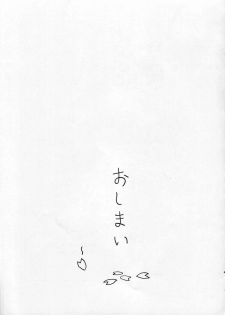 おしまい